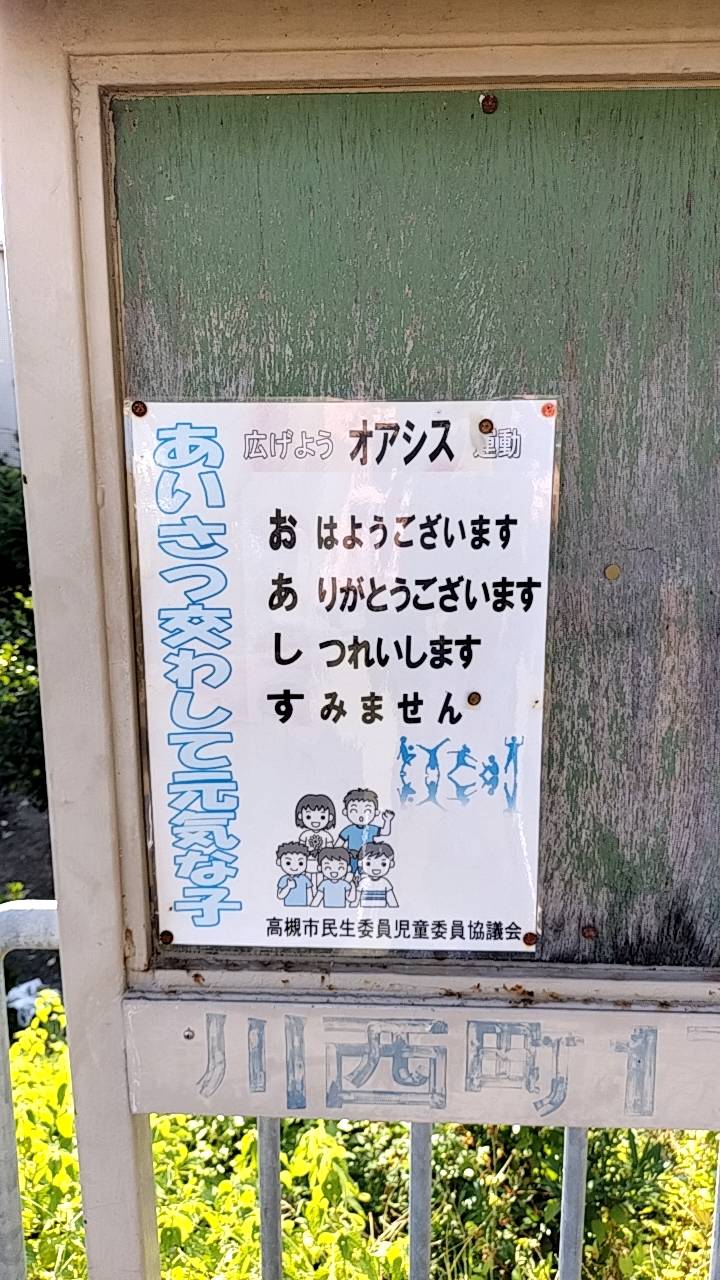 あいさつ交わして元気な子
広げよう オアシス 運動
お はようございます
あ りがとうございます
し つれいします
す みません
高槻市民生委員児童委員協議会
川西町1